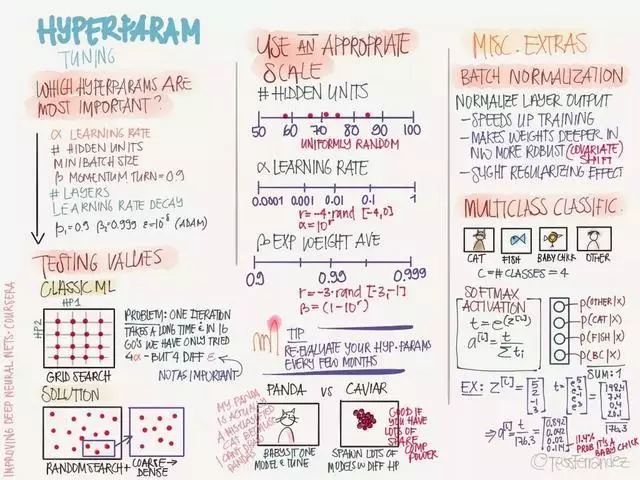 HYPERPARAM
TUNING
WHICH HYPERPARAMS ARE
MOST IMPORTANT?
α LEARNING RATE
# HIDDEN UNITS
MINIBATCH SIZE
β MOMENTUM TURN = 0.9
# LAYERS
LEARNING RATE DECAY
β₁=0.9 β₂=0.999 ε=10⁻⁸ (ADAM)
TESTING VALUES
CLASSIC ML
HP1
HP2
GRID SEARCH
PROBLEM: ONE ITERATION
TAKES A LONG TIME & IN 16
GO'S WE HAVE ONLY TRIED
4α - BUT 4 DIFF ε
NOT AS IMPORTANT
SOLUTION
RANDOM SEARCH + COARSE → DENSE
IMPROVING DEEP NEURAL NETS · COURSERA
USE AN APPROPRIATE
SCALE
# HIDDEN UNITS
50 60 70 80 90 100
UNIFORMLY RANDOM
α LEARNING RATE
0.0001 0.001 0.01 0.1 1
r=-4·rand [-4,0]
α=10ʳ
β EXP WEIGHT AVE
0.9 0.99 0.999
r=-3·rand [-3,-1]
β=(1-10ʳ)
TIP
RE-EVALUATE YOUR HYP. PARAMS
EVERY FEW MONTHS
PANDA VS CAVIAR
MY PANDA
IS ACTUALLY
A MISGUIDED
CAT BECAUSE
I CAN'T DRAW
PANDAS
BABYSIT ONE
MODEL & TUNE
SPAWN LOTS OF
MODELS W DIFF HP
GOOD IF YOU
HAVE LOTS
OF SHARE
COMP
POWER
MISC. EXTRAS
BATCH NORMALIZATION
NORMALIZE LAYER OUTPUT
- SPEEDS UP TRAINING
- MAKES WEIGHTS DEEPER IN
NW MORE ROBUST (COVARIATE
SHIFT)
- SLIGHT REGULARIZING EFFECT
MULTICLASS CLASSIFIC.
CAT FISH BABY CHICK OTHER
C = # CLASSES = 4
SOFTMAX
ACTIVATION
t = e^(z^[L])
a^[L] = t / Σtᵢ
P(OTHER|X)
P(CAT|X)
P(FISH|X)
P(BC|X)
SUM: 1
EX: z^[L] = [5 2 -1 3]
t = [e⁵ e² e⁻¹ e³] = [148.4 7.4 0.4 20.1]
176.3
→ a^[L] = t / 176.3 = [0.842 0.042 0.002 0.114]
11.4%
PROB IT'S A
BABY CHICK
@TessFerrandez